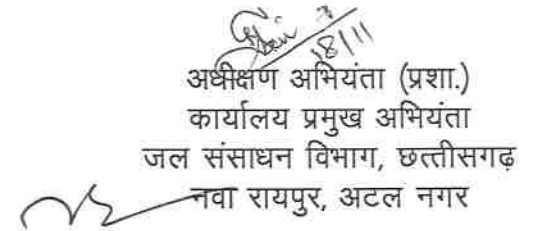 18/11
अधीक्षण अभियंता (प्रशा.)
कार्यालय प्रमुख अभियंता
जल संसाधन विभाग, छत्तीसगढ़
नवा रायपुर, अटल नगर